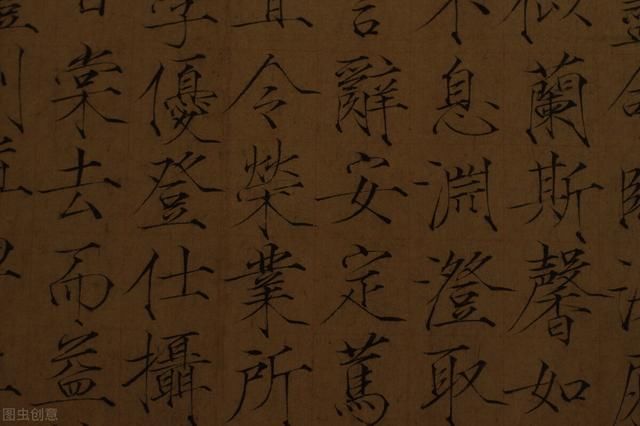 似蘭斯馨如
不息淵澄取
言辭安定篤
宜令榮業所
學優登仕攝
甘棠去而益
图虫创意